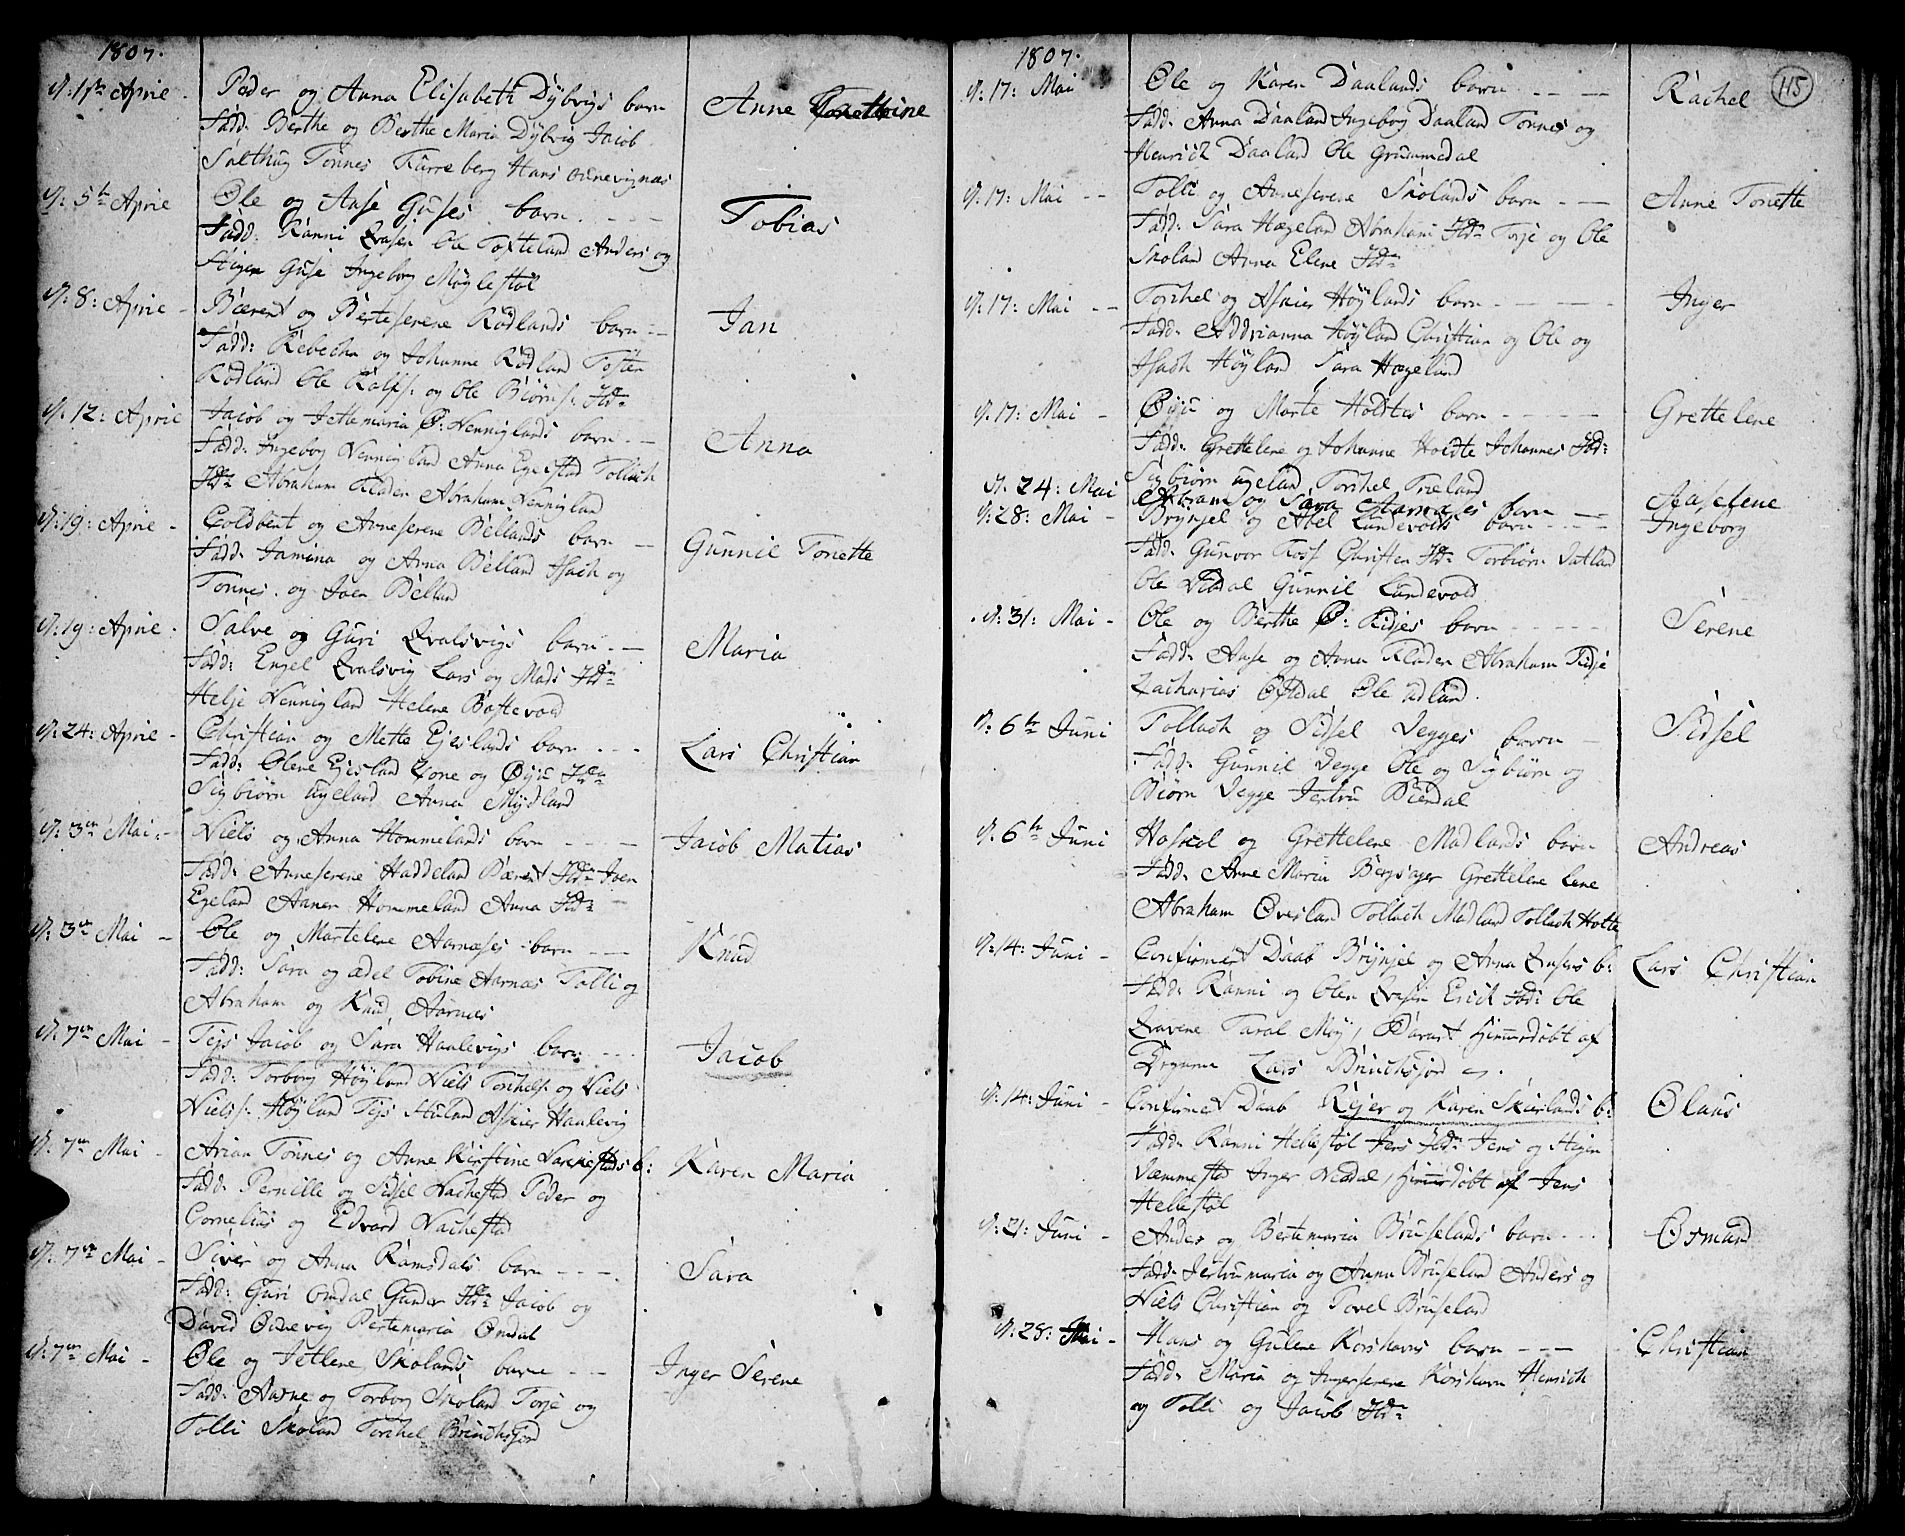 1807.
d: 1ste Aprie - Peder og Anna Elisabeth Dÿbvigs barn Anne
Fadd: Berthe og Berthe Maria Dÿbvig Jacob
Salthug Tønnes Hans
d: 5te Aprie Ole og Aase Guses barn - - - Tobias
Fadd: Ranni Ole Tofteland Anders og
Guse Ingeborg Møglestøl
d: 8: Aprie - Bærent og Berteserene Rødlands barn - - Jan
Fadd: Rebecha og Johanne Rødland Tosten
Rødland Ole Rolfs. og Ole Biørns. Jtdn
d: 12: Aprie Jacob og Jettemaria Ø: Henniglands barn - - Anna
Fadd: Ingebog Hennigland Anna Egelstad Tollach
Jtdn Abraham Fladen Abraham Hennigland
d: 19: Aprie - Goldbent og Anneserene Bellands barn - Gunnil Tonette
Fadd: Jamina og Anna Belland Isach og
Tonnes. og Joen Belland
d: 19: Aprie - Salve og Guri Qvalsvigs barn - - Maria
Fadd: Engel Qvalsvig Lars og Mads Jtdn
Helje Hennigland Helene Bostevold
d: 24: Aprie - Christian og Mette Ejeslands barn - - - Lars Christian
Fadd: Olene Ejesland Tone og Øÿu Jtdn
Sigbiørn Ugeland Anna Mÿdland
d: 3en Mai - Niels og Anna Hommelands barn - - - Jacob Matias
Fadd: Anneserene Haddeland Bærent Jtdn Joen
Egeland Aanen Hommeland Anna Jtdn
d: 3en Mai - Ole og Martelene Aarnæses barn - - - Knud
Fadd: Sara og Adel Tobine Aarnæs Tolli og
Abraham og Knud Aarnæs
d: 7en Mai - Tejs Jacob og Sara Haalevigs barn - - - Jacob
Fadd: Torborg Høÿland Niels Torkels. og Niels
Niels. Høÿland Tejs Askier Haalevig
d: 7en Mai - Arian Tønnes og Anne Kirstine Vatnestads b: Karen Maria
Fadd: Pernille og Sidsel Vachestad Peder og
Cornelius og Edvard Vachestad
d: 7en Mai - Siver og Anna Ramsdals barn - - - - Sara
Fadd: Guri Omdal Gunder Jtdn Jacob og
David Bertemaria Omdal
d: 7en Mai - Ole og Jetlene Skolands barn - - Inger Serene
Fadd: Aadne og Torbog Skoland Torje og
Tolli Skoland Torkel Bruchsjord
1807. 115
d: 17: Mai Ole og Karen Daalands barn - - - - Rachel
Fadd: Anna Daaland Ingebog Daaland Tønnes og
Henrich Daaland Ole Grummedal
d: 17: Mai - - Tolli og Anneserene Skolands barn - - Anne Tonette
Fadd: Sara Hægeland Abraham Jtdn Torje og Ole
Skoland Anna Elene Jtdn
d: 17: Mai - - Torkel og Askier Høÿlands barn - - - - Inger
Fadd: Addrianna Høÿland Christian og Ole og
Isach Høÿland Sara Hægeland
d: 17: Mai - Øÿu og Marte Holdtes barn - - - - Grettelene
Fadd: Grettelene og Johanne Holdte Johannes Jtd:
Sigbiørn Ugeland Torkel Træland
d: 24: Mai Abram og Sara Aarnæses barn - - Aaselene
d: 28: Mai - Brÿnjel og Abel Lundevolds barn - - - Ingeborg
Fadd: Gunvor Christen Jtdn Torbiørn
Ole Gunnil Lundevold
d: 31: Mai - Ole og Berthe Ø: Kidjes barn - - - - - Serene
Fadd: Aase og Anna Fladen Abraham Kidje
Zacharias Ole Udland
d: 6te Juni Tollach og Sidsel Vegges barn - Sidsel
Fadd: Gunnil Vegge Ole og Sigbiørn og
Biørn Vegge Jertru
d: 6te Juni Haskol og Grettelene Madlands barn Andreas
Fadd: Anne Maria Bergsager Grettelene Lene
Abraham Øvesland Tollach Madland Tollach Holte
d: 14: Juni - Confirmert Daab Brÿnjel og Anna b: Lars Christian
Fadd: Ranni og Olen Erich Jtd: Ole
Taral Møÿ, Barnet Himmedøbt af
Lars Bruchsjord
d: 14: Juni - Confirmet Daab Rejer og Karen Skeirlands b: Olaus
Fadd: Ranni Hellestøl Jens Jtdn Jens og
Væmmestad Inger Himmedøbt af Jens
Hellestøl
d: 21: Juni - Anders og Bertemaria Bruselands barn - - - Osmund
Fadd: Jertrumaria og Anna Bruseland Anders og
Niels Christian og Tovel Bruseland
d: 28: Juni - Hans og Gulene Korshavns barn - - - Christian
Fadd: Maria og Ingerserene Korshavn Henrich
og Tolli og Jacob Jtdn